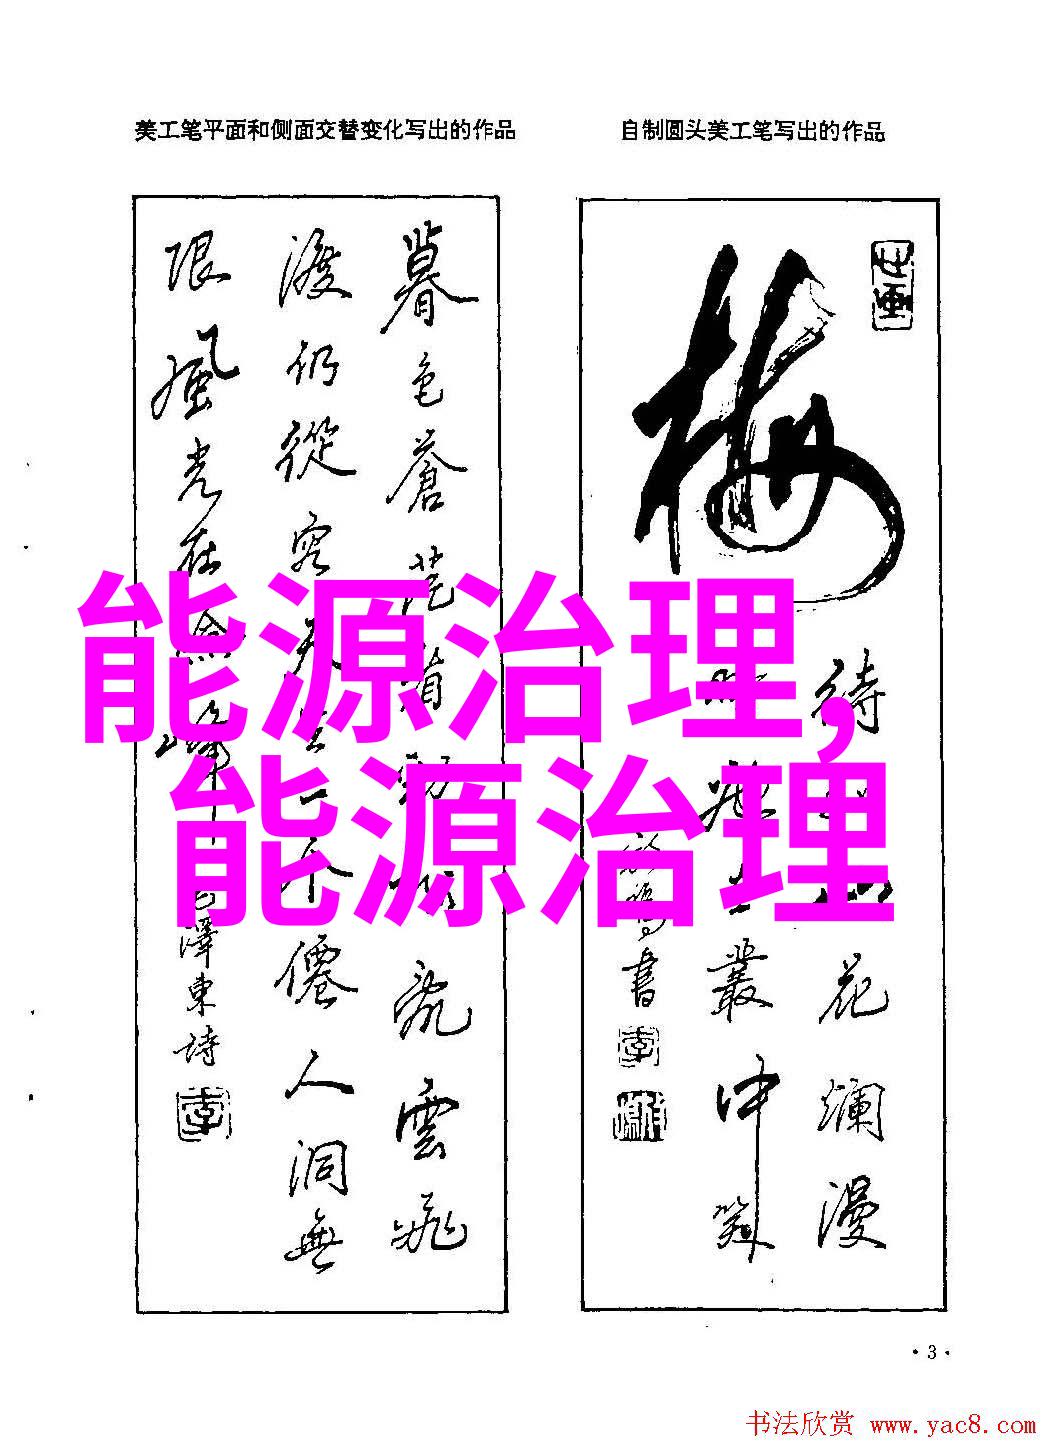 美工笔平面和侧面交替变化写出的作品
自制圆头美工笔写出的作品
暮色蒼茫看勁松亂雲飛
渡仍從容天生一个僊人洞無
限風光在險峰
毛澤東詩
梅
待到山花爛漫
時她在叢中笑
書
能源治理,
能源治理
·3·
书法欣赏 www.yac8.com